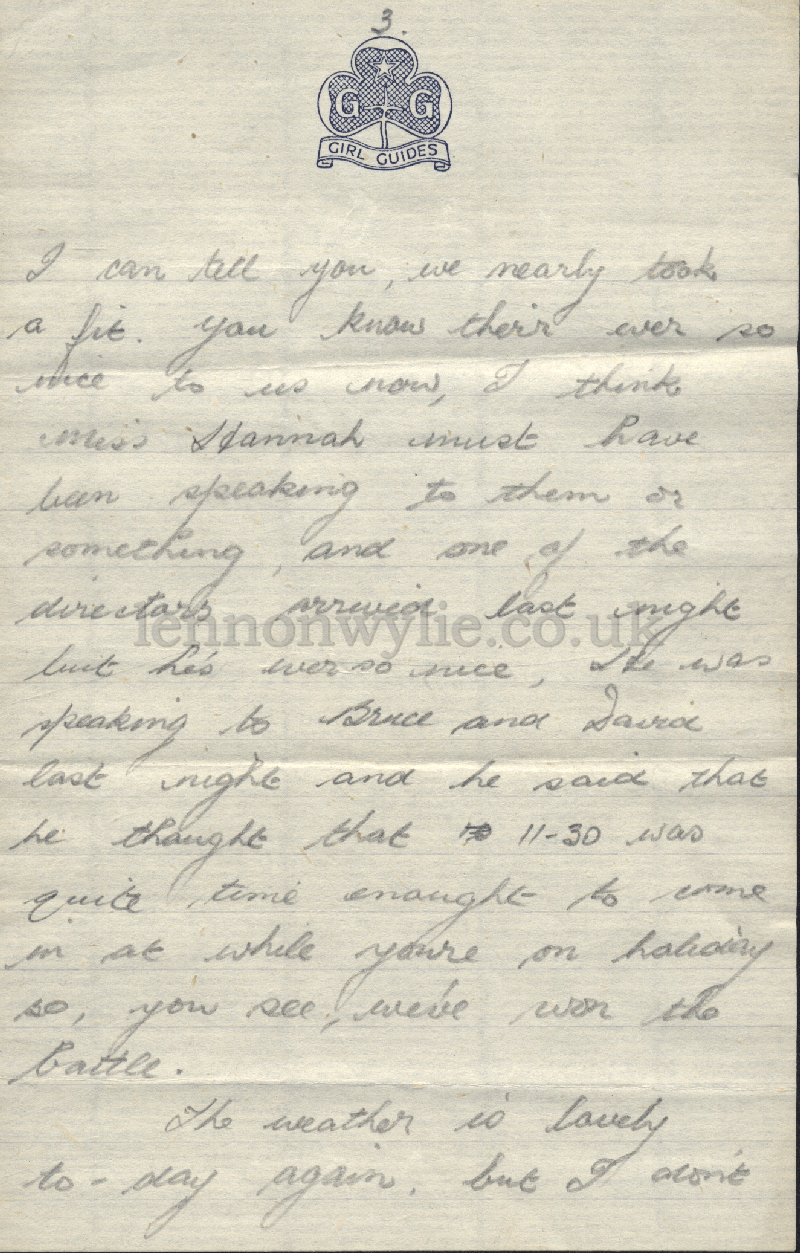 3.
G G
GIRL GUIDES
I can tell you, we nearly took
a fit. You know their'r ever so
nice to us now, I think
Miss Hannah must have
been speaking to them or
something, and one of the
directors arrived last night
but he's ever so nice, He was
speaking to Bruce and David
last night and he said that
he thought that 11-30 was
quite time enought to come
in at while you're on holiday
so, you see, we've won the
battle.
The weather is lovely
to-day again, but I don't
lennonwylie.co.uk